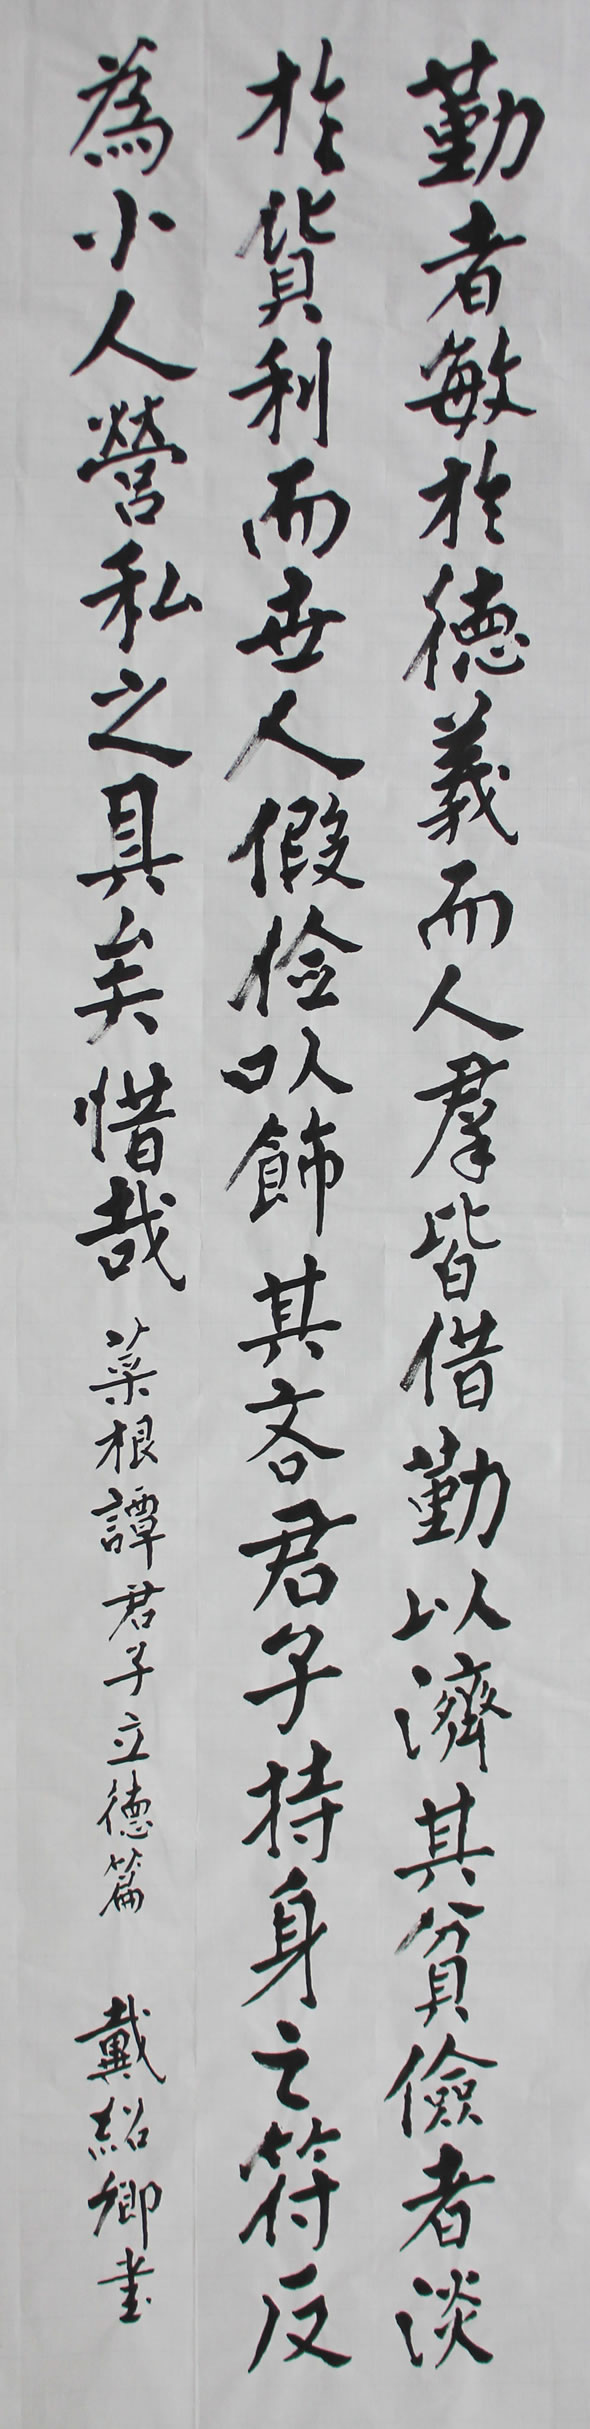 勤者敏於德義而人羣皆借勤以濟其貧儉者淡
於貨利而世人假俭以飾其吝君子持身之符反
為小人營私之具矣惜哉 菜根譚君子立德篇 戴紹卿書